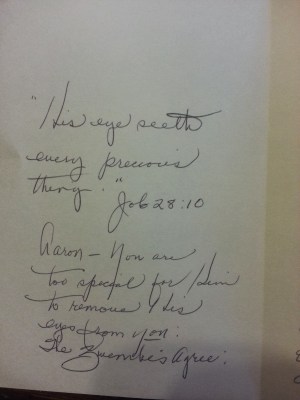 "His eye seeth
every precious
thing."
Job 28:10
Aaron - You are
too special for Him
to remove His
eyes from you.
The agree: